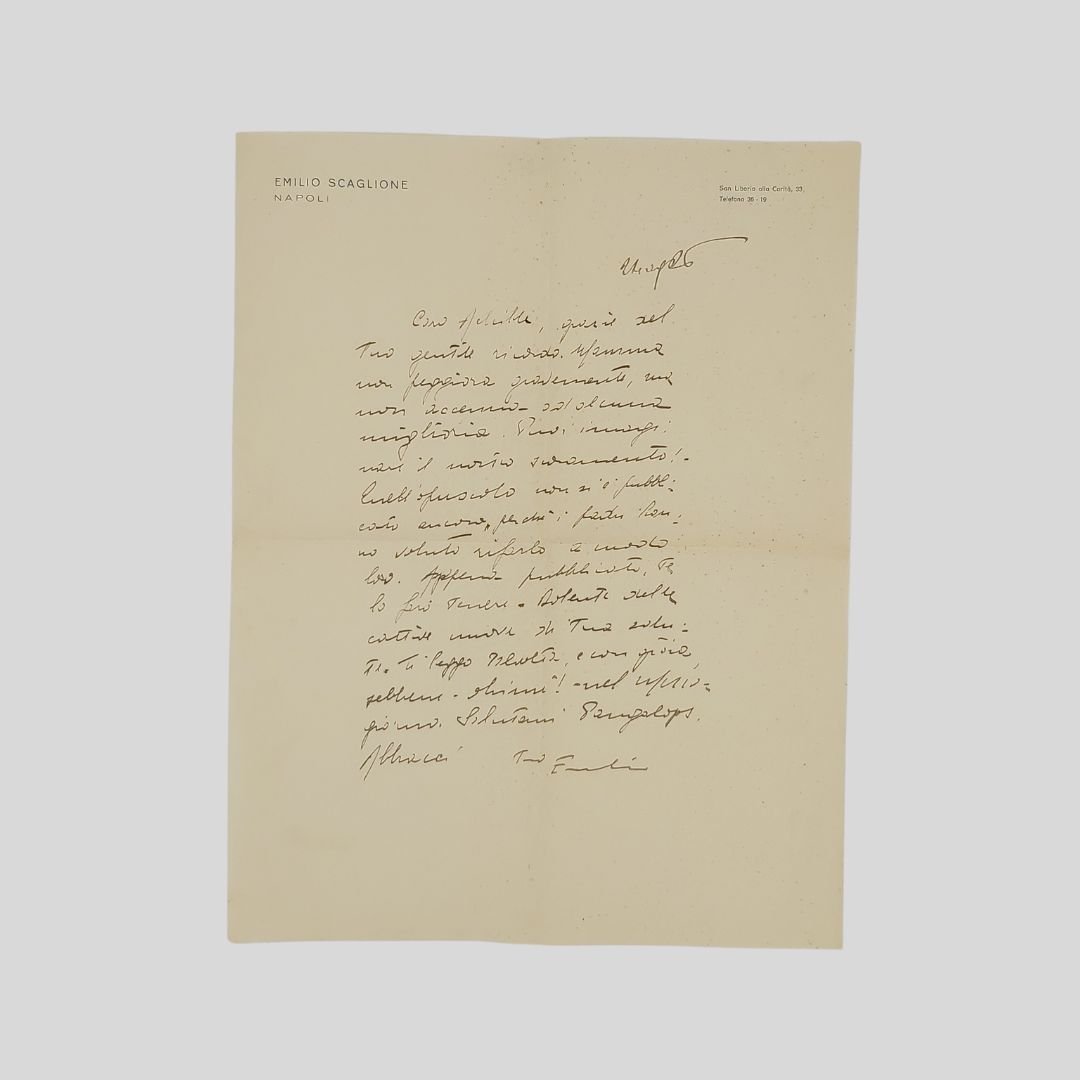 EMILIO SCAGLIONE
NAPOLI
San Liborio alla Carità, 33,
Telefono 36 - 19
Caro Achille, grazie del
Tuo gentile ricordo. Mamma
non peggiora gravemente, ma
non accenna ad alcuna
miglioria. Puoi imagi:
nare il nostro !-
Quell'opuscolo non si è pubbli:
cato ancora, perchè i fratu han:
no voluto rifarlo a modo
loro. Appena pubblicato, Te
lo farò tenere - Dolente delle
cattive nuove di Tua salu:
te. Ti leggo talvolta, e con gioia,
sebbene - ohimè! - nel Mezzo-
giorno. Salutami
Abbracci Tuo Emilio